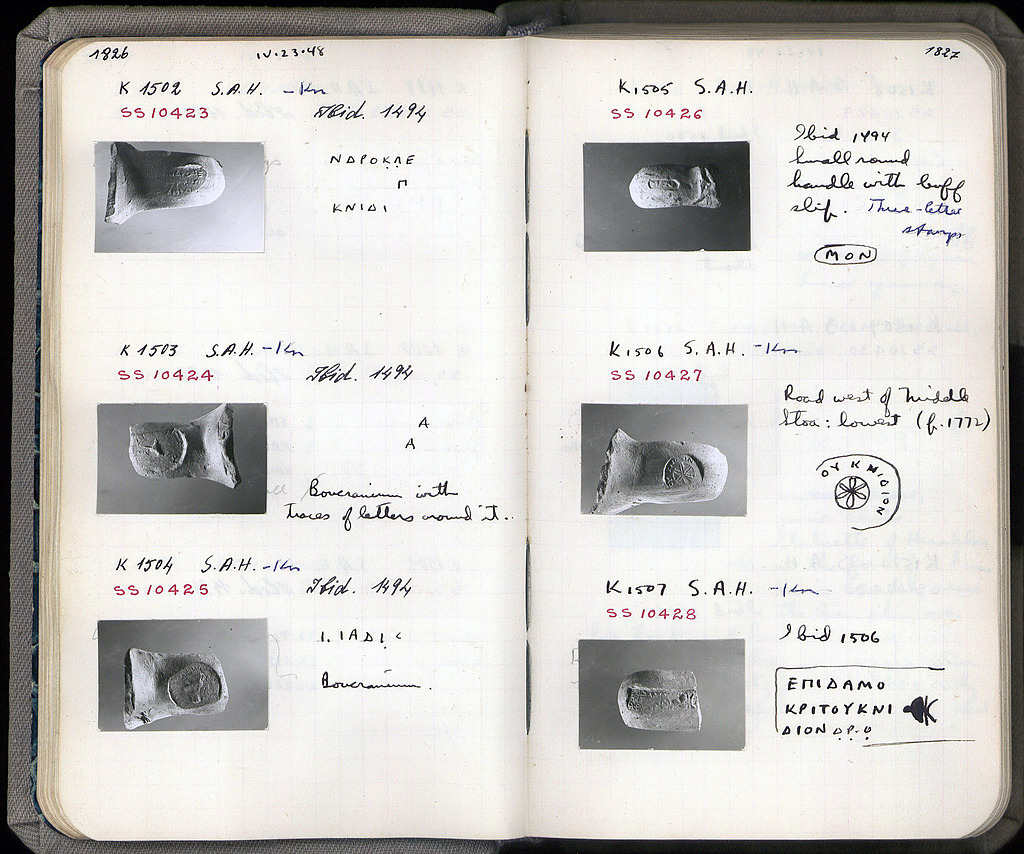 1826 IV·23·48
K 1502 S.A.H. -Kn
SS 10423 Ibid. 1494
ΝΔΡΟΚΛΕ
Π
ΚΝΙΔΙ
K 1503 S.A.H. -Kn
SS 10424 Ibid. 1494
Α
Α
Boucranium with
traces of letters around it.
K 1504 S.A.H. -Kn
SS 10425 Ibid. 1494
Ι. ΙΑΔΙϹ
Boucranium.
1827
K1505 S.A.H.
SS 10426
Ibid 1494
Small round
handle with buff
slip. Three-letter
stamps
ΜΟΝ
K1506 S.A.H. -Kn
SS 10427
Road west of Middle
Stoa: lowest (p.1772)
ΟΥ ΚΝΙΔΙΟΝ
K1507 S.A.H. -Kn
SS 10428
Ibid 1506
ΕΠΙΔΑΜΟ
ΚΡΙΤΟΥΚΝΙ
ΔΙΟΝΔΡ·Ο